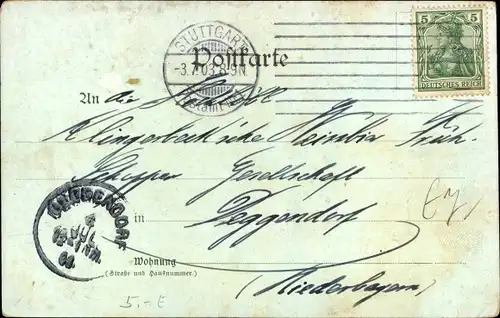 STUTTGART
-3.7.03.8-9N.
Postkarte
5 5
DEUTSCHES REICH
An die
Klingerbeck'sche Weinbier Früh-
schoppen Gesellschaft
in Deggendorf
DEGGENDORF
JUL
Wohnung
(Straße und Hausnummer.)
(Niederbayern)
5.- E